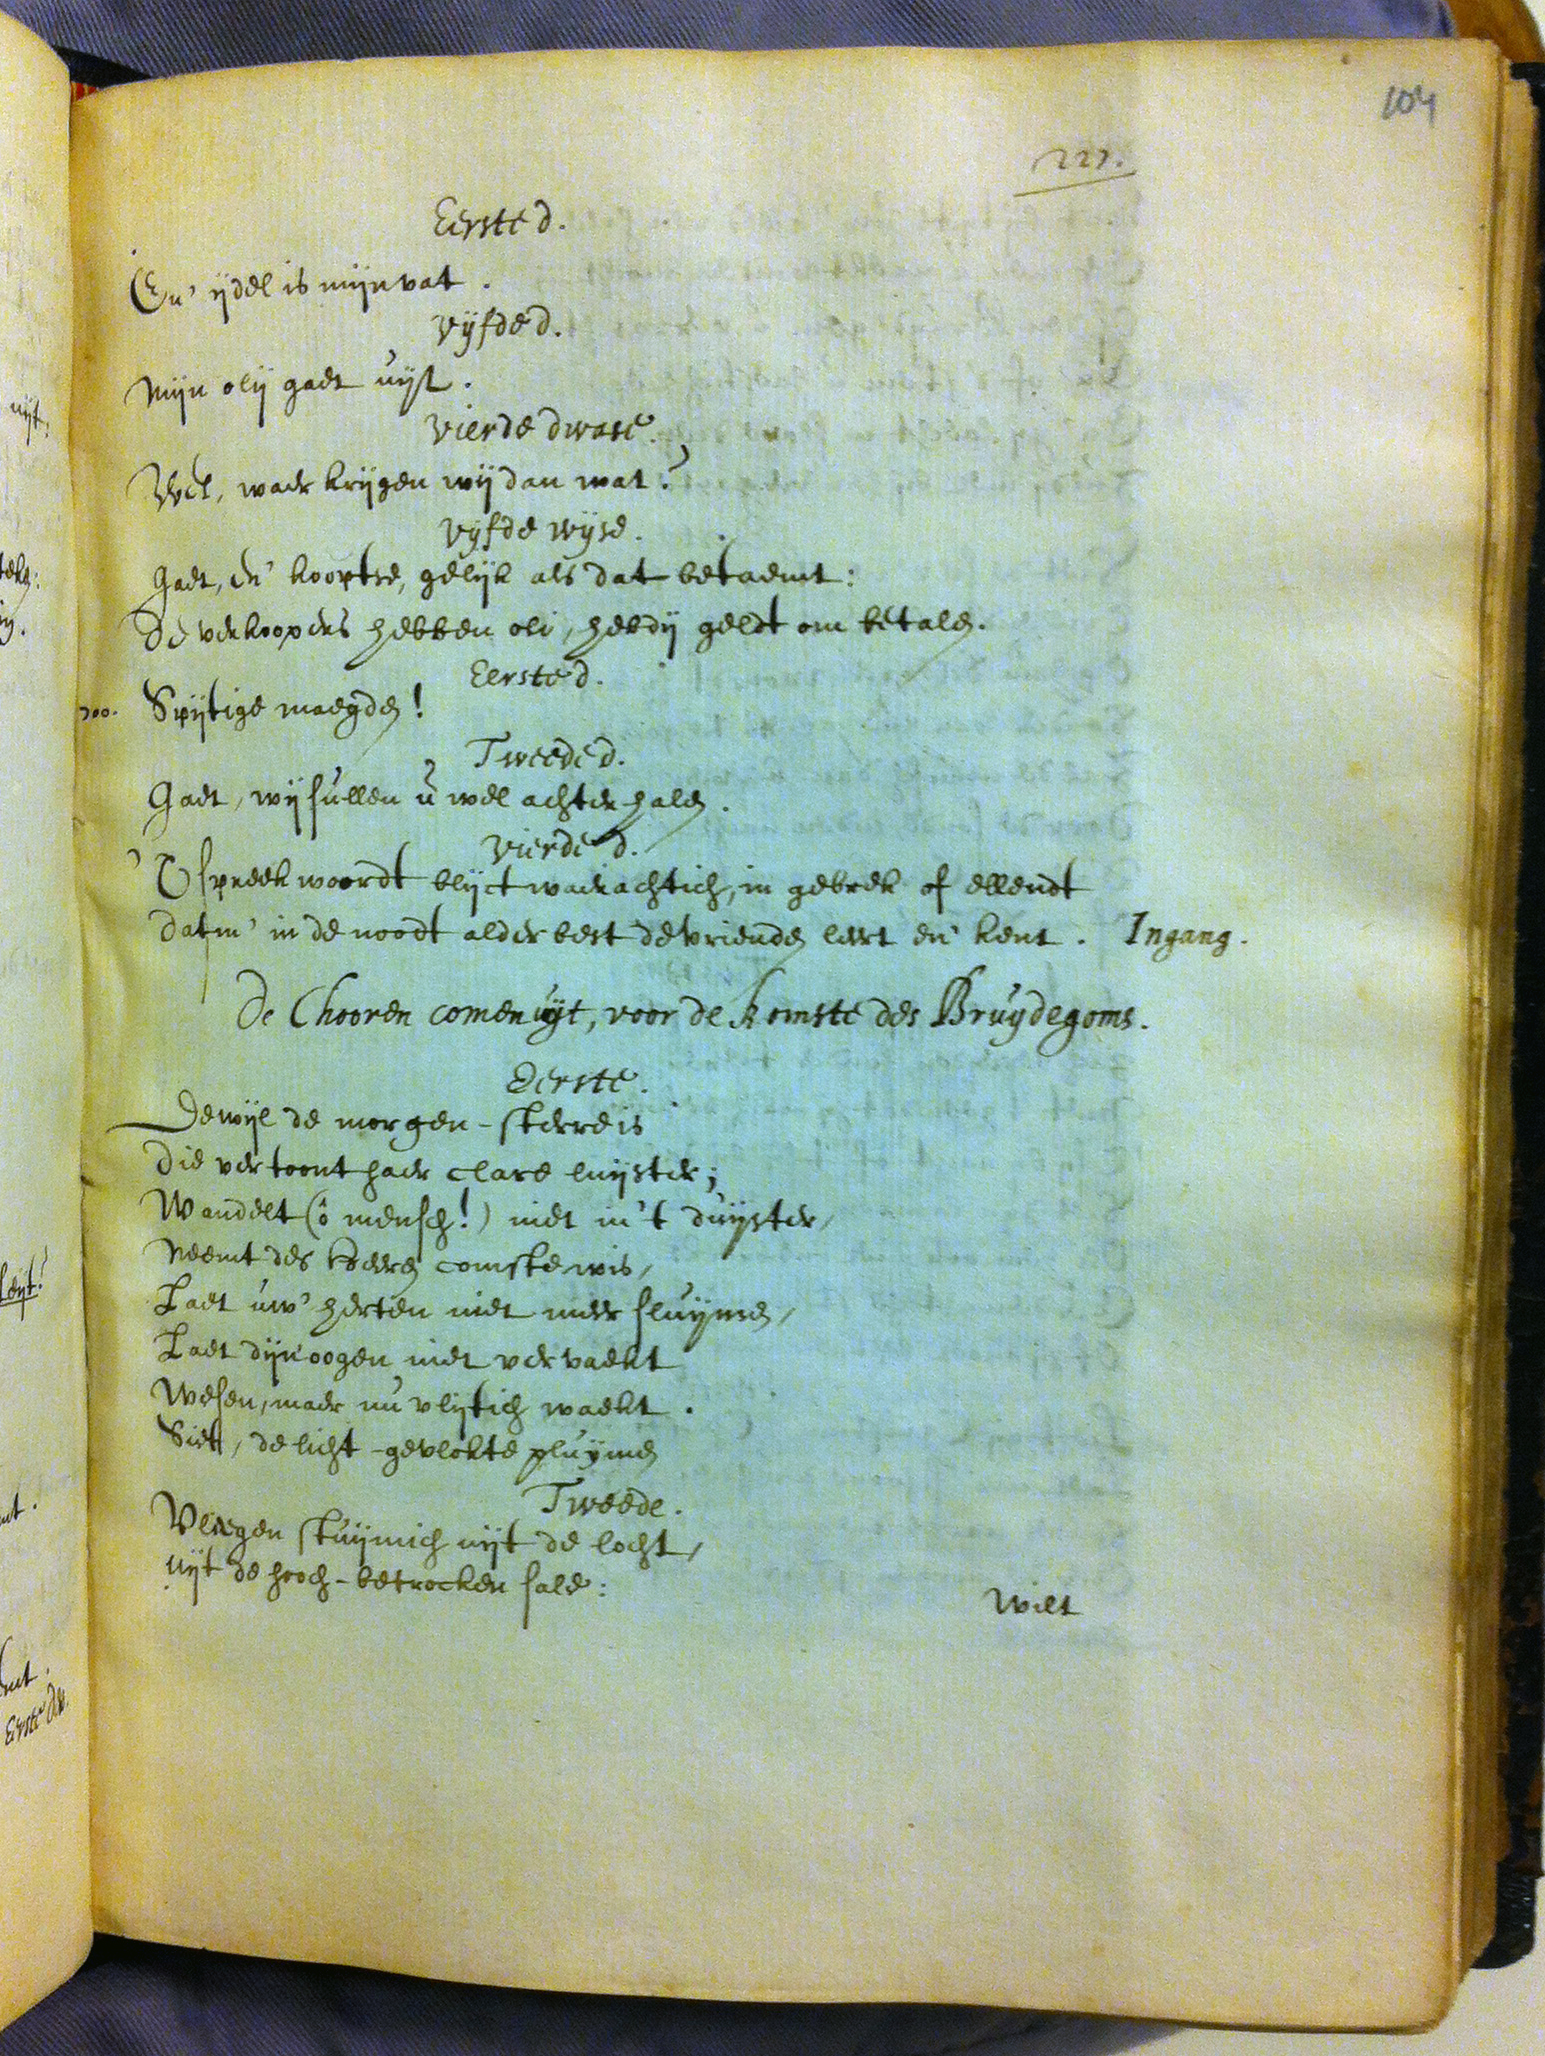 104
227.
Eerste d.
En' ijdel is mijn vat.
Vijfde d.
Mijn olij gaet uijt.
Vierde dwase.
Wel, waer krijgen wij dan wat?
Vijfde wijse.
Gaet, en' kooptse, gelijk als dat betaemt:
De verkoopers hebben oli, hebdij geldt om betalen.
Eerste d.
700. Spijtige maegden!
Tweede d.
Gaet, wij sullen u wel achterhalen.
Vierde d.
'T spreekwoordt blijct waerachtich, in gebrek of ellendt
Datm' in de noodt alderbest de vrienden leert en' kent. Ingang.
De Chooren comen uyt, voor de komste des Bruydegoms.
Eerste.
Dewijl de morgen-sterre is
Die vertoont haer clare luijster;
Wandelt (ô mensch!) niet in 't duijster,
Neemt des Heeren comste wis,
Laet uw' herten niet meer sluijmen,
Laet dijn oogen niet vervaekt
Wesen, maer nu vlijtich waekt.
Siet, de licht-gevlokte pluijmen
Tweede.
Vliegen stuijmich uijt de locht,
Uijt de hooch-betrocken sale:
Wilt